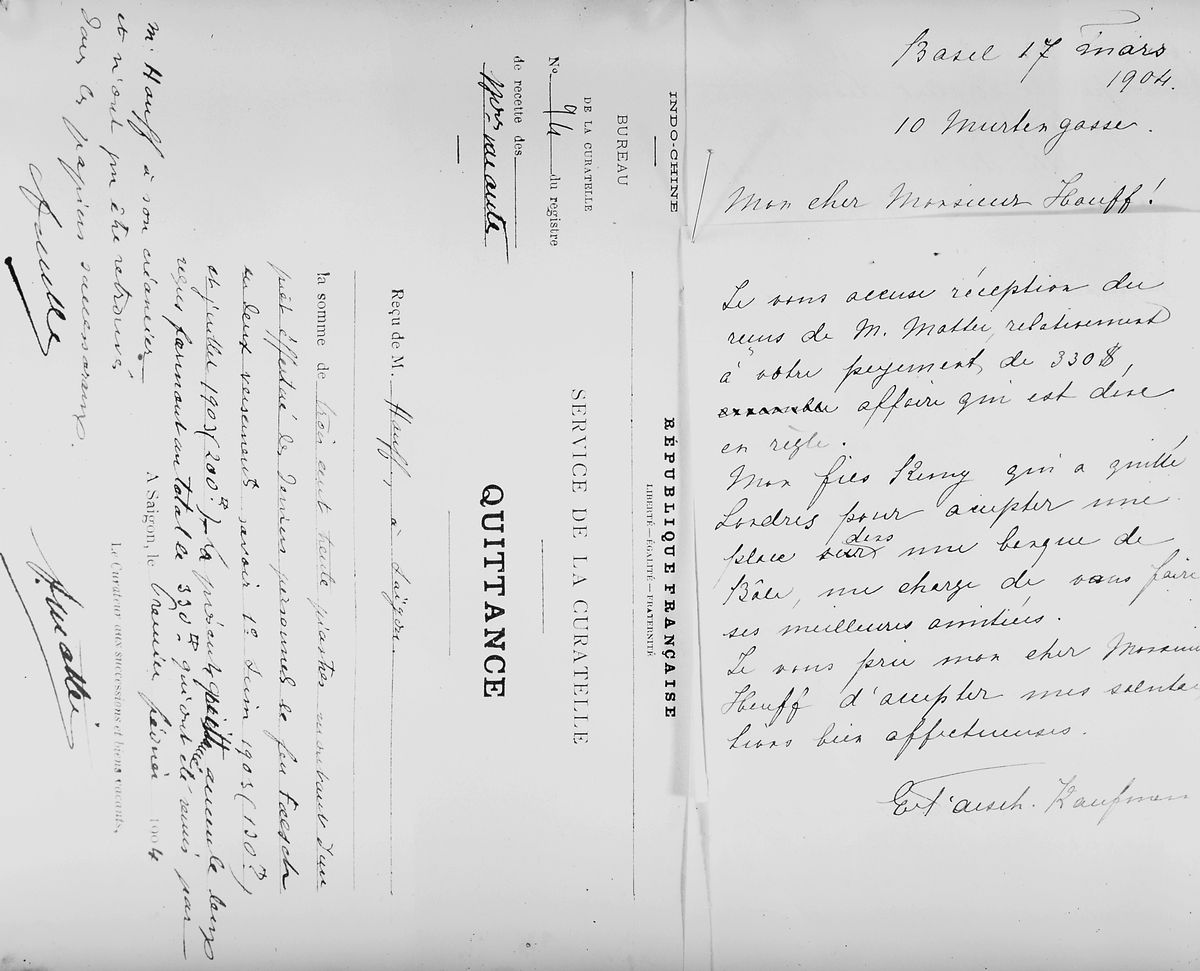 INDO-CHINE
BUREAU
DE LA CURATELLE
N° 94 du registre
de recette des
RÉPUBLIQUE FRANÇAISE
LIBERTÉ—ÉGALITÉ—FRATERNITÉ
SERVICE DE LA CURATELLE
QUITTANCE
Reçu de M. Hauff, à Saïgon
la somme de trois cent trente piastres montant d'un
prêt effectué des deniers personnels de feu Faesch
en deux versements savoir 1er Juin 1903 (130$)
et juillet 1903 (200$) La présente quittance annule leurs
reçus formant un total de 330$ qui ont été remis par
M. Hauff à son créancier
et n'ont pu être retrouvés
dans les papiers successoraux.
A Saigon, le Premier février 1904
Le Curateur aux successions et biens vacants,
J. Mattei
Basel 17 mars
1904.
10 Murtengasse.
Mon cher Monsieur Hauff!
Je vous accuse réception du
reçus de M. Mattei, relativement
à votre payement de 330$,
affaire qui est dene
en règle.
Mon fils Remy qui a quitté
Londres pour acepter une
place dans une banque de
Bâle, me charge de vous faire
ses meilleures amitiés.
Je vous prie mon cher Monsieur
Hauff d'acepter mes saluta
tions bien affectueuses.
E. Faesch. Kaufman